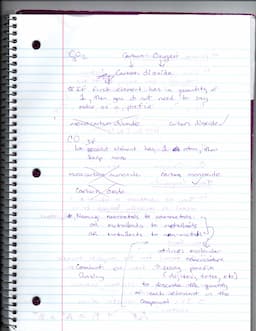 CO₂ Carbon - Oxygen
Carbon dioxide
If first element has a quantity of
1, then you do not need to say
mono as a prefix
monocarbon dioxide carbon dioxide ✓
CO If
second element has 1 atom, then
keep mono
monocarbon monoxide carbon monoxide
Carbon oxide
Naming nonmetals to nonmetals
or metalloids to metalloids
or metalloids to nonmetals
utilizes molecular
nomenclature
using prefix
(di, tri, tetra, etc)
to describe the quantity
of each element in the
compound